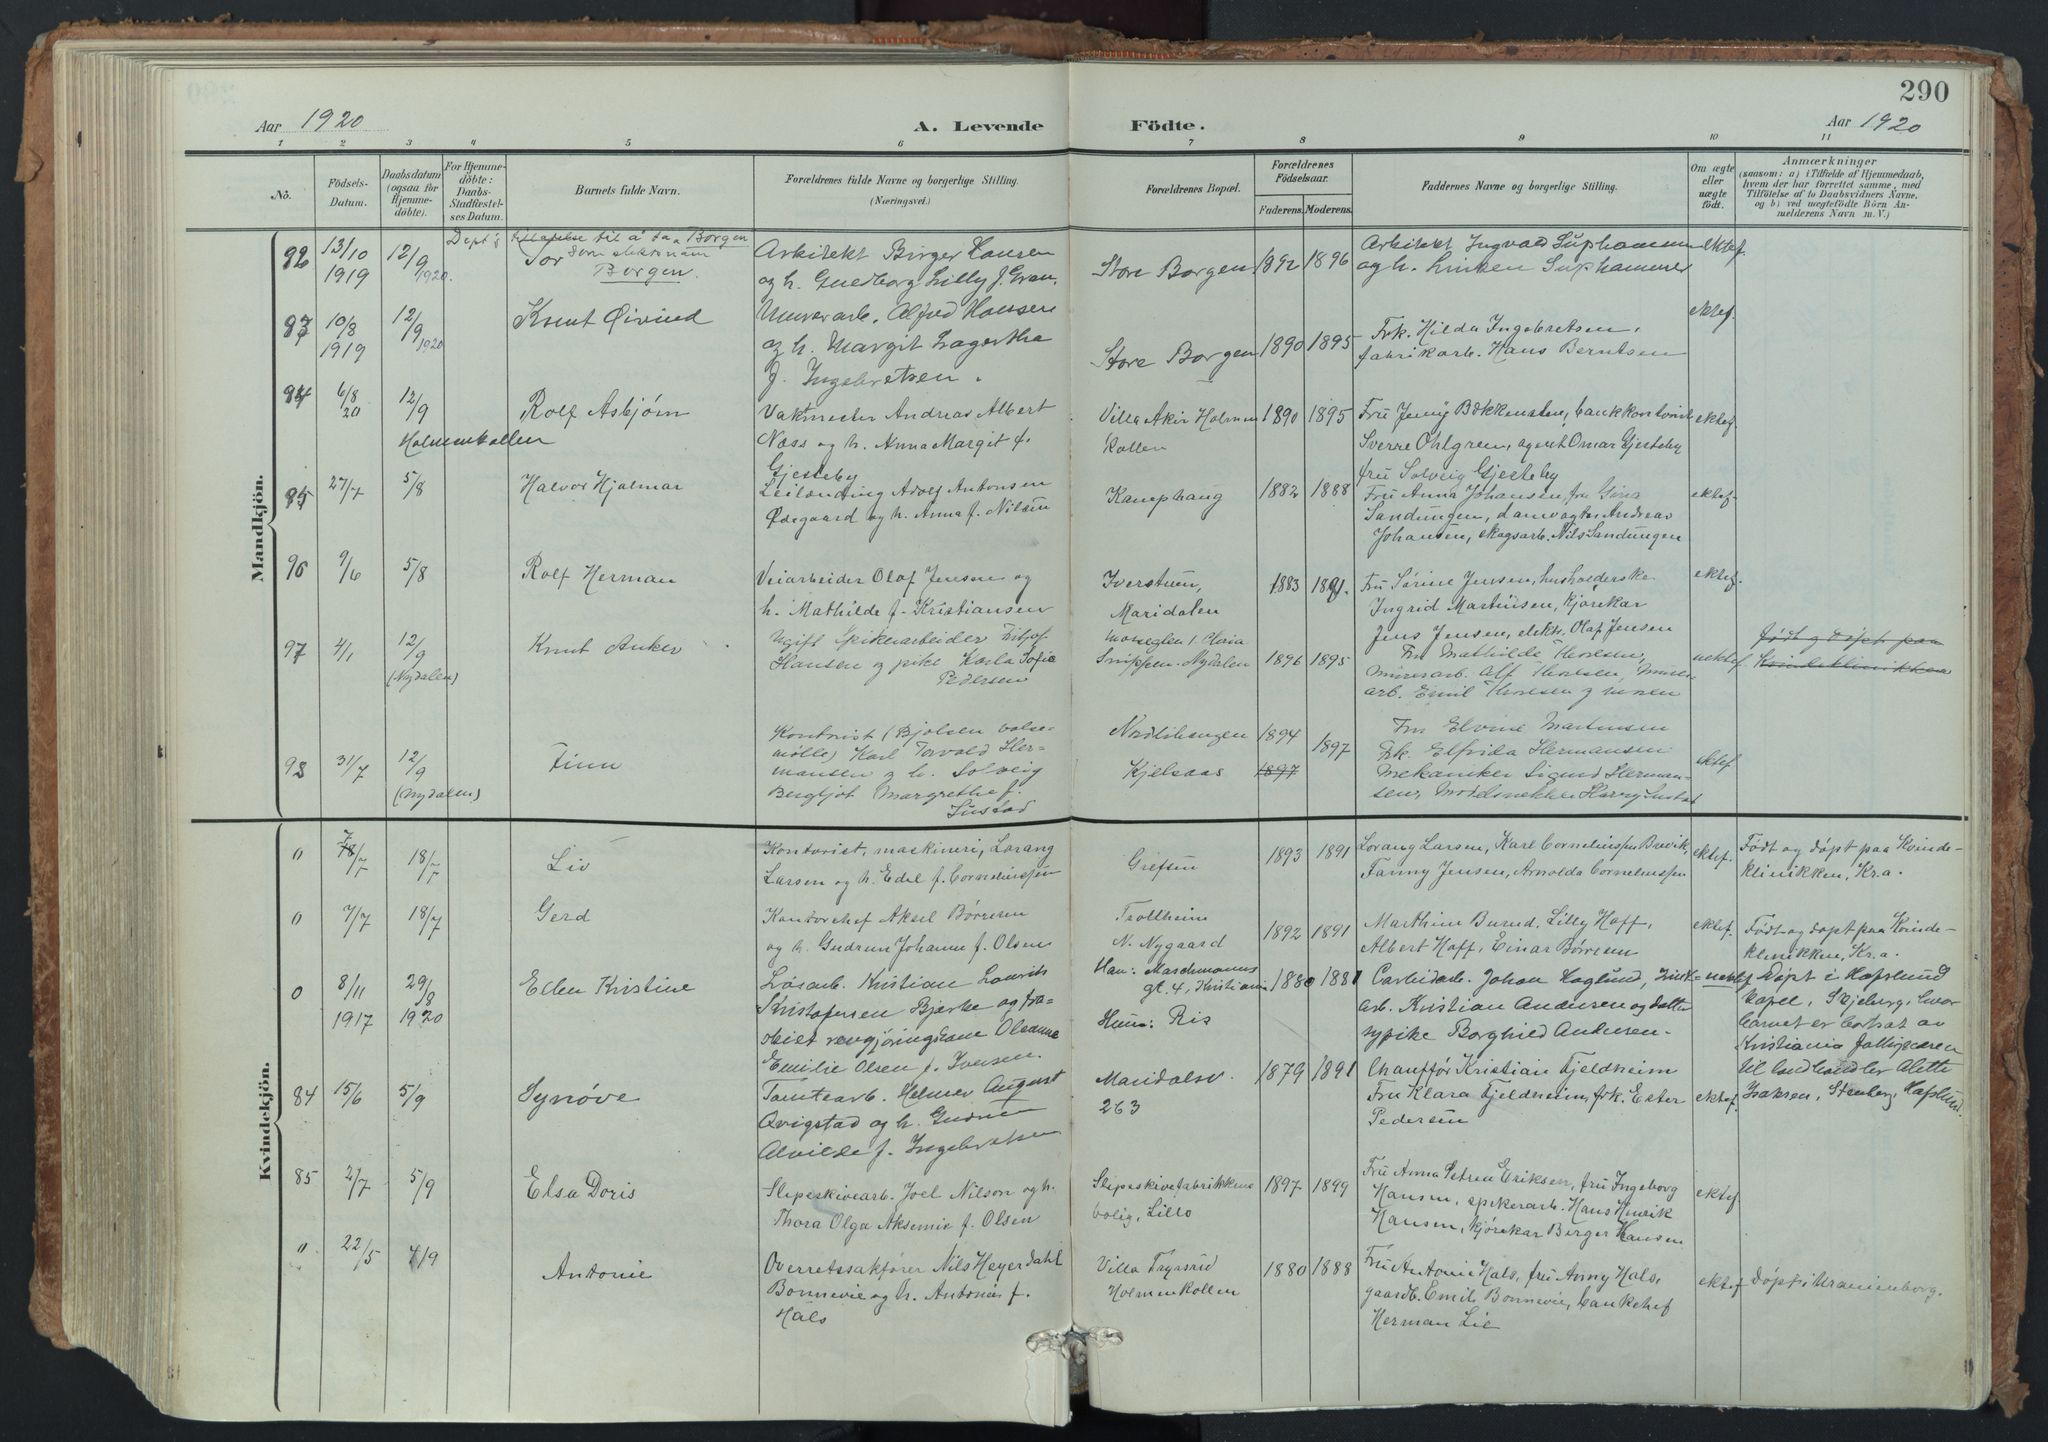 290
Aar 1920
A. Levende
Födte.
Aar 1920
1 2 3 4 5 6 7 8 9 10 11
No.
Födsels-
Datum.
Daabsdatum
(ogsaa for
Hjemme-
döbte).
For Hjemme-
döbte:
Daabs-
Stadfæstel-
ses Datum.
Barnets fulde Navn.
Forældrenes fulde Navne og borgerlige Stilling.
(Næringsvei.)
Forældrenes Bopæl.
Forældrenes
Födselsaar.
Faderens.
Moderens.
Faddernes Navne og borgerlige Stilling.
Om ægte
eller
uægte
födt.
Anmærkninger
(saasom: a) i Tilfælde af Hjemmedaab,
hvem der har forrettet samme, med
Tilföielse af to Daabsvidners Navne,
og b) ved uægtefödte Börn An-
melderens Navn m. V.)
Mandkjön.
92 13/10
1919
12/9
1920.
til å ta Borgen
som slektsnavn
Tor
Borgen
Arkitekt Birger Hansen
og h. Guedborg Lilly f. Gran.
Store Borgen
1892 1896
Arkitekt Ingvald Suphammer
og h. Linken Suphammer
ektef.
93 10/8
1919
12/9
1920
Knut Øivind
Murerarb. Alfred Hansen
og h. Margit Lagertha
f. Ingebretsen.
Store Borgen
1890 1895
Frk. Hilda Ingebretsen,
fabrikarb. Hans Berntsen
ektef.
94 6/8
20
12/9
Holmenkollen
Rolf Asbjørn
Vaktmester Andreas Albert
Næss og h. Anna Margit f.
Gjesteby
Villa Akir Holmen
kollen
1890 1895
Fru Jenny Bækkensten, bankkontorist
Sverre Ohlgren, agent Omar Gjesteby
fru Solveig Gjesteby
ektef.
95 27/7 5/8
Halvor Hjalmar
Leilending Adolf Antonsen
Ødegaard og h. Anna f. Nilsen
Kamphaug
1882 1888
Fru Anna Johansen, fru Gina
Sandungen, damvogter Andreas
Johansen, skogsarb. Nils Sandungen
ektef.
96 9/6 5/8
Rolf Herman
Veiarbeider Olaf Jensen og
h. Mathilde f. Kristiansen
Iverstuen,
Maridalen
1883 1891.
Fru Sørine Jensen, husholderske
Ingrid Martinsen, kjørekar
Jens Jensen, elektr. Olaf Jensen
ektef.
97 4/1 12/9
(Nydalen)
Knut Anker
Ugift Spikerarbeider Fritjof
Hansen og pike Karla Sofie
Pedersen
Snippen. Nydalen
1896 1895
Fru Mathilde Thoresen,
Murerarb. Alf Thoresen, Murer-
arb. Emil Thoresen og moren
uektef.
født og døpt paa
Kvindeklinikken
98 31/7 12/9
(Nydalen)
Finn
Kontorist (Bjølsen valse-
mølle) Karl Torvald Her-
mansen og h. Solveig
Bergljot Margrethe f.
Sustad
Nordlihaugen
Kjelsaas
1894
1897
1897
Fru Elvine Martinsen
Frk. Elfrida Hermansen
Mekaniker Sigurd Herman-
sen, Modelsnekker Harry Sustad
ektef.
Kvindekjön.
0 7/7 18/7
Liv
Kontorist, maskineri, Lorang
Larsen og h. Edel f. Cornelinssen
Grefsen
1893 1891
Lorang Larsen, Karl Cornelinssen Brevik,
Fanny Jensen, Arnolda Cornelinssen
ektef.
Født og døpt paa Kvinde-
klinikken, Kr.a.
0 7/7 18/7
Gerd
Kontorchef Aksel Børresen
og h. Gudrun Johanne f. Olsen
Trollheim
N. Nygaard
1892 1891
Marthin Burud, Lilly Hoff,
Albert Hoff, Einar Børresen
ektef.
Født og døpt paa Kvinde-
klinikken, Kr.a.
0 8/11
1917
29/8
1920
Ellen Kristine
Løsarb. Kristian Laurits
Kristofersen Bjerke og fra-
skilt rengjøringskone Oleanna
Emilie Olsen f. Iversen.
Han: Maschmanns
gt. 4, Kristiania
Hun: Ris
1880 1881
Carbidarb. Johan Hoglund, Zink-
arb. Kristian Andersen og datter
sypike Borghild Andersen.
uektef
Døpt i Hafslund
kapel, Skjeberg, hvor
barnet er bortsat av
Kristiania fattigvæsen
til landhandler Alette
Isaksen, Stenberg, Hafslund.
84 15/6 5/9
Synøve
Tomtearb. Helmer August
Qvigstad og h. Gudrun
Alvilde f. Ingebretsen
Maridalsv.
263
1879 1891
Chauffør Kristian Fjeldheim
Fru Klara Fjeldheim, frk. Ester
Pedersen
ektef.
85 2/7 5/9
Elsa Doris
Slipeskivearb. Joel Nilson og h.
Thora Olga Aksemie f. Olsen
Slipeskivefabrikkens
bolig, Lillo
1897 1899
Fru Anna Petrea Eriksen, fru Ingeborg
Hansen, spikerarb. Hans Henrik
Hansen, kjørekar Birger Hansen
ektef.
0 22/5 4/9
Antonie
Overretssakfører Nils Heyerdahl
Bonnevie og h. Antonie f.
Hals
Villa Fryssrud
Holmenkollen
1880 1888
Fru Antonie Hals, fru Anny Hals,
gaardb. Emil Bonnevie, bankchef
Herman Lie
ektef.
Døpt i Uranienborg.